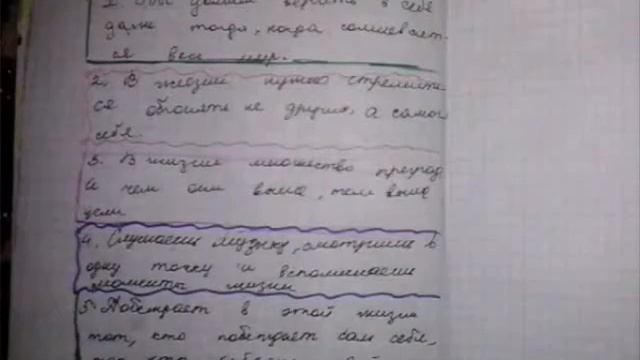 верить в себя
даже тогда, когда сомневает-
ся весь мир.
2. В жизни нужно стремить
ся обгонять не других, а самого
себя.
3. В жизни множество преград
и чем они выше, тем выше
цели
4. Слушаешь музыку, смотришь в
одну точку и вспоминаешь
моменты жизни
5 Побеждает в этой жизни
тот, кто победил сам себя,